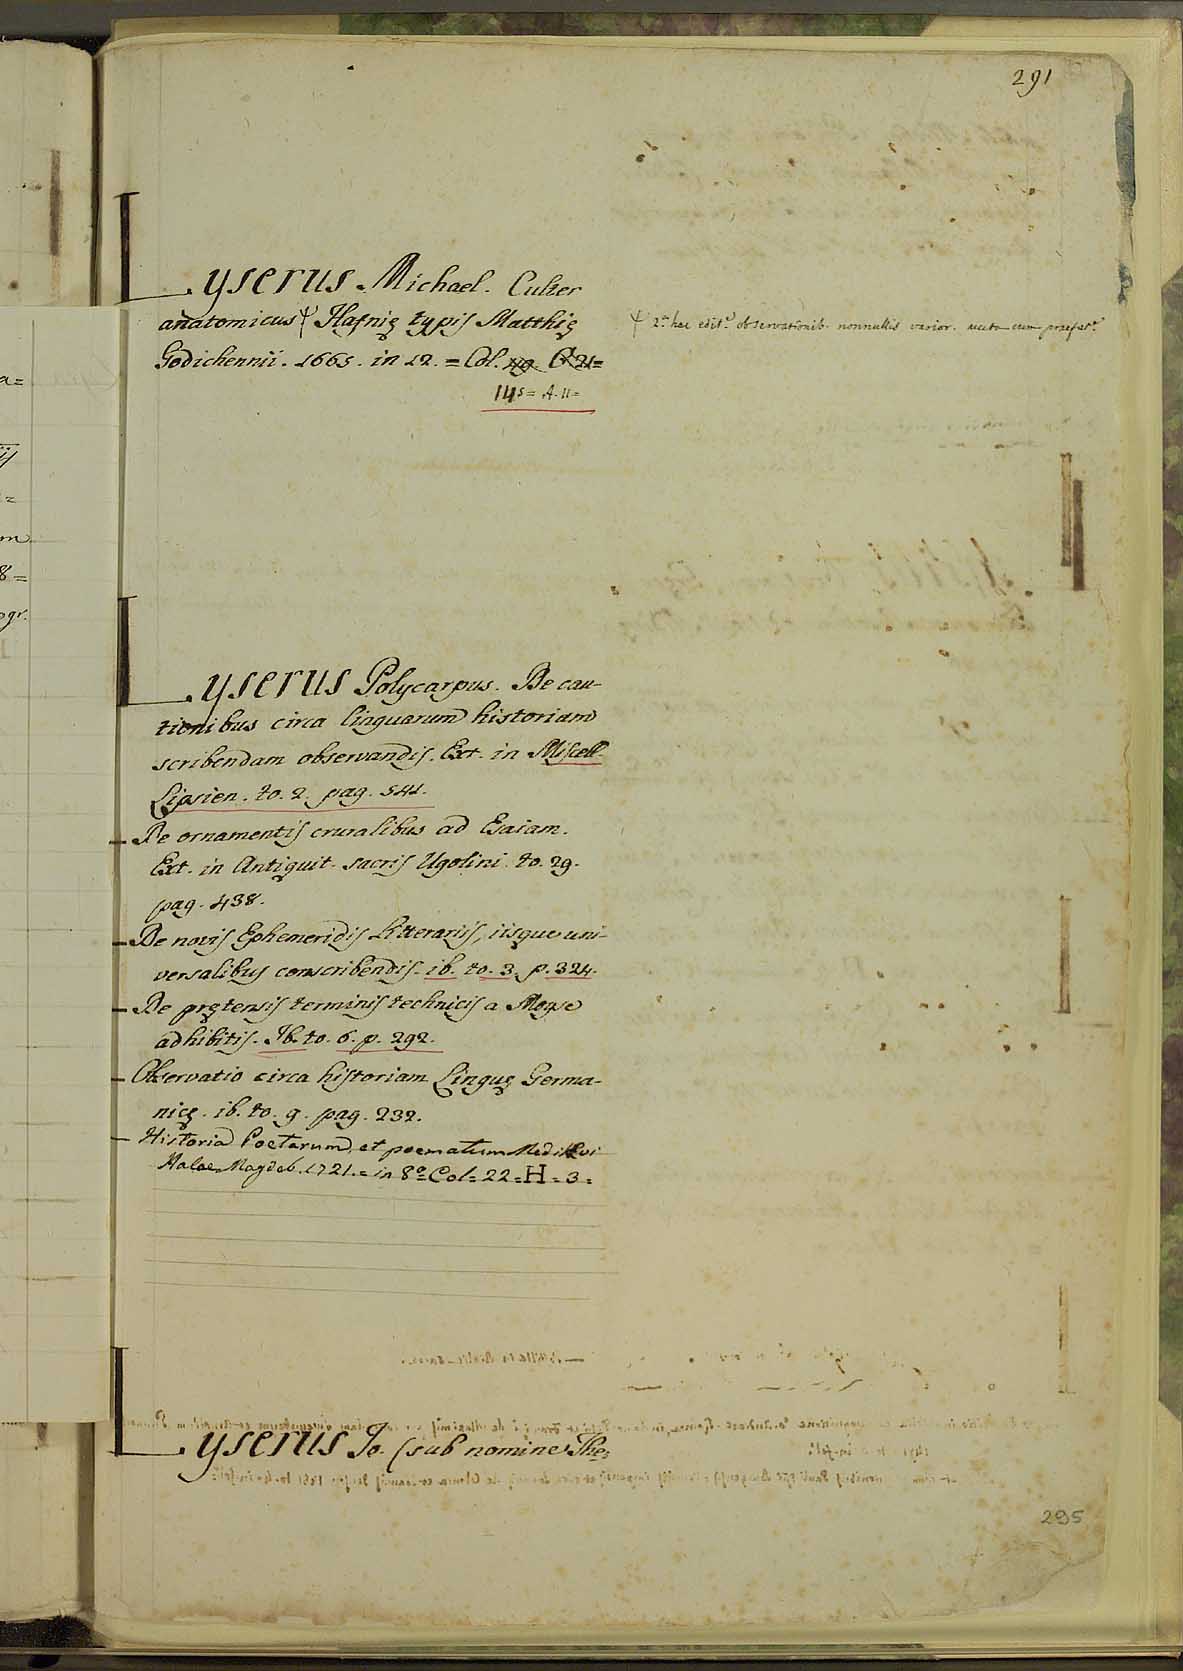 291
Lyserus Michael. Culter
anatomicus Ψ Hafnię typis Matthię
Godichennii. 1665. in 12. = Col. 49. Q 21=
14s = A. 11=
Ψ 2.ª hac edit.e observationib. nonnullis varior. aucta cum praefat.e
Lyserus Polycarpus. De cau-
tionibus circa linguarum historiam
scribendam observandis. Ext. in Miscell.
Lipsien. to. 2. pag. 541.
- De ornamentis cruralibus ad Esaiam.
Ext. in Antiquit. sacris Ugolini. to. 29.
pag. 438.
- De novis Ephemeridis Litterariis, iisque uni-
versalibus conscribendis. ib. to. 3. p. 324.
- De prętensis terminis technicis a Moyse
adhibitis. Ib. to. 6. p. 292.
- Observatio circa historiam Linguę Germa-
nicę. ib. to. 9. pag. 232.
- Historia Poetarum, et poematum Medii Ævi
Halae Magdeb. 1721. = in 8º = Col = 22 = H = 3 =
Lyserus Jo. (sub nomine The=
295
a=
ijs
=
m
8=
ogr.